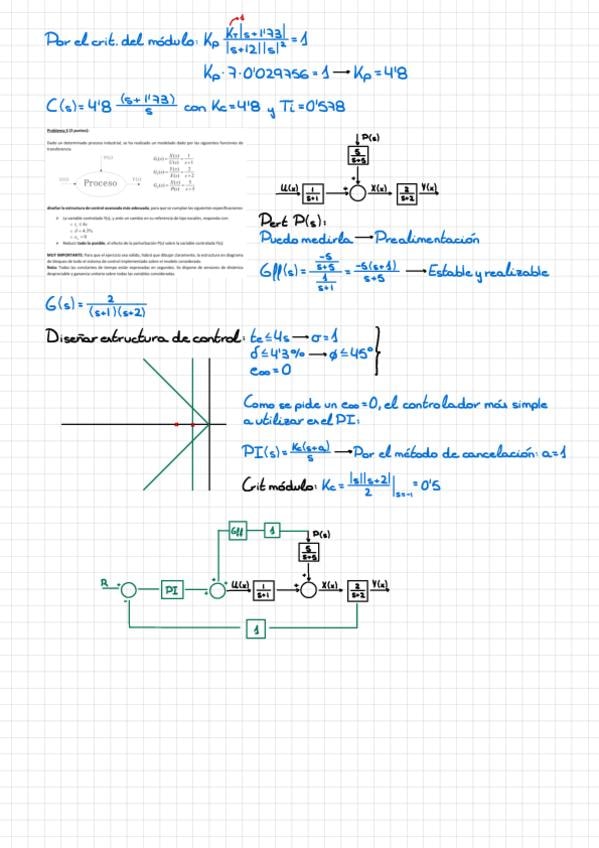 Por el crit. del módulo: Kp KT|s+1'73| / |s+12||s|² = 1
Kp · 7 · 0'029756 = 1 → Kp = 4'8
C(s) = 4'8 (s+1'73)/s con Kc = 4'8 y Ti = 0'578
Dado un determinado proceso industrial, se ha realizado un modelado dado por las siguientes funciones de
transferencia
Proceso
diseñar la estructura de control avanzada más adecuada, para que se cumplan las siguientes especificaciones:
La variable controlada Y(s), y ante un cambio en su referencia de tipo escalón, responda con:
Reducir todo lo posible, el efecto de la perturbación P(s) sobre la variable controlada Y(s)
MUY IMPORTANTE: Para que el ejercicio sea válido, habrá que dibujar claramente, la estructura en diagrama
de bloques de todo el sistema de control implementado sobre el modelo considerado.
Nota: Todas las constantes de tiempo están expresadas en segundos. Se dispone de sensores de dinámica
despreciable y ganancia unitaria sobre todas las variables consideradas.
P(s)
5/(s+5)
U(x) 1/(s+1) X(x) 2/(s+2) Y(x)
Pert P(s):
Puedo medirla → Prealimentación
Gff(s) = (-5/(s+5)) / (1/(s+1)) = -5(s+1)/(s+5) → Estable y realizable
G(s) = 2/((s+1)(s+2))
Diseñar estructura de control: te ≤ 4s → σ = 1
δ ≤ 4'3% → φ ≤ 45°
e∞ = 0
Como se pide un e∞ = 0, el controlador más simple
a utilizar es el PI:
PI(s) = Kc(s+a)/s → Por el método de cancelación: a = 1
Crit módulo: Kc = |s||s+2|/2 |s=-1 = 0'5
Gff 1 P(s)
5/(s+5)
R PI U(x) 1/(s+1) X(x) 2/(s+2) Y(x)
1